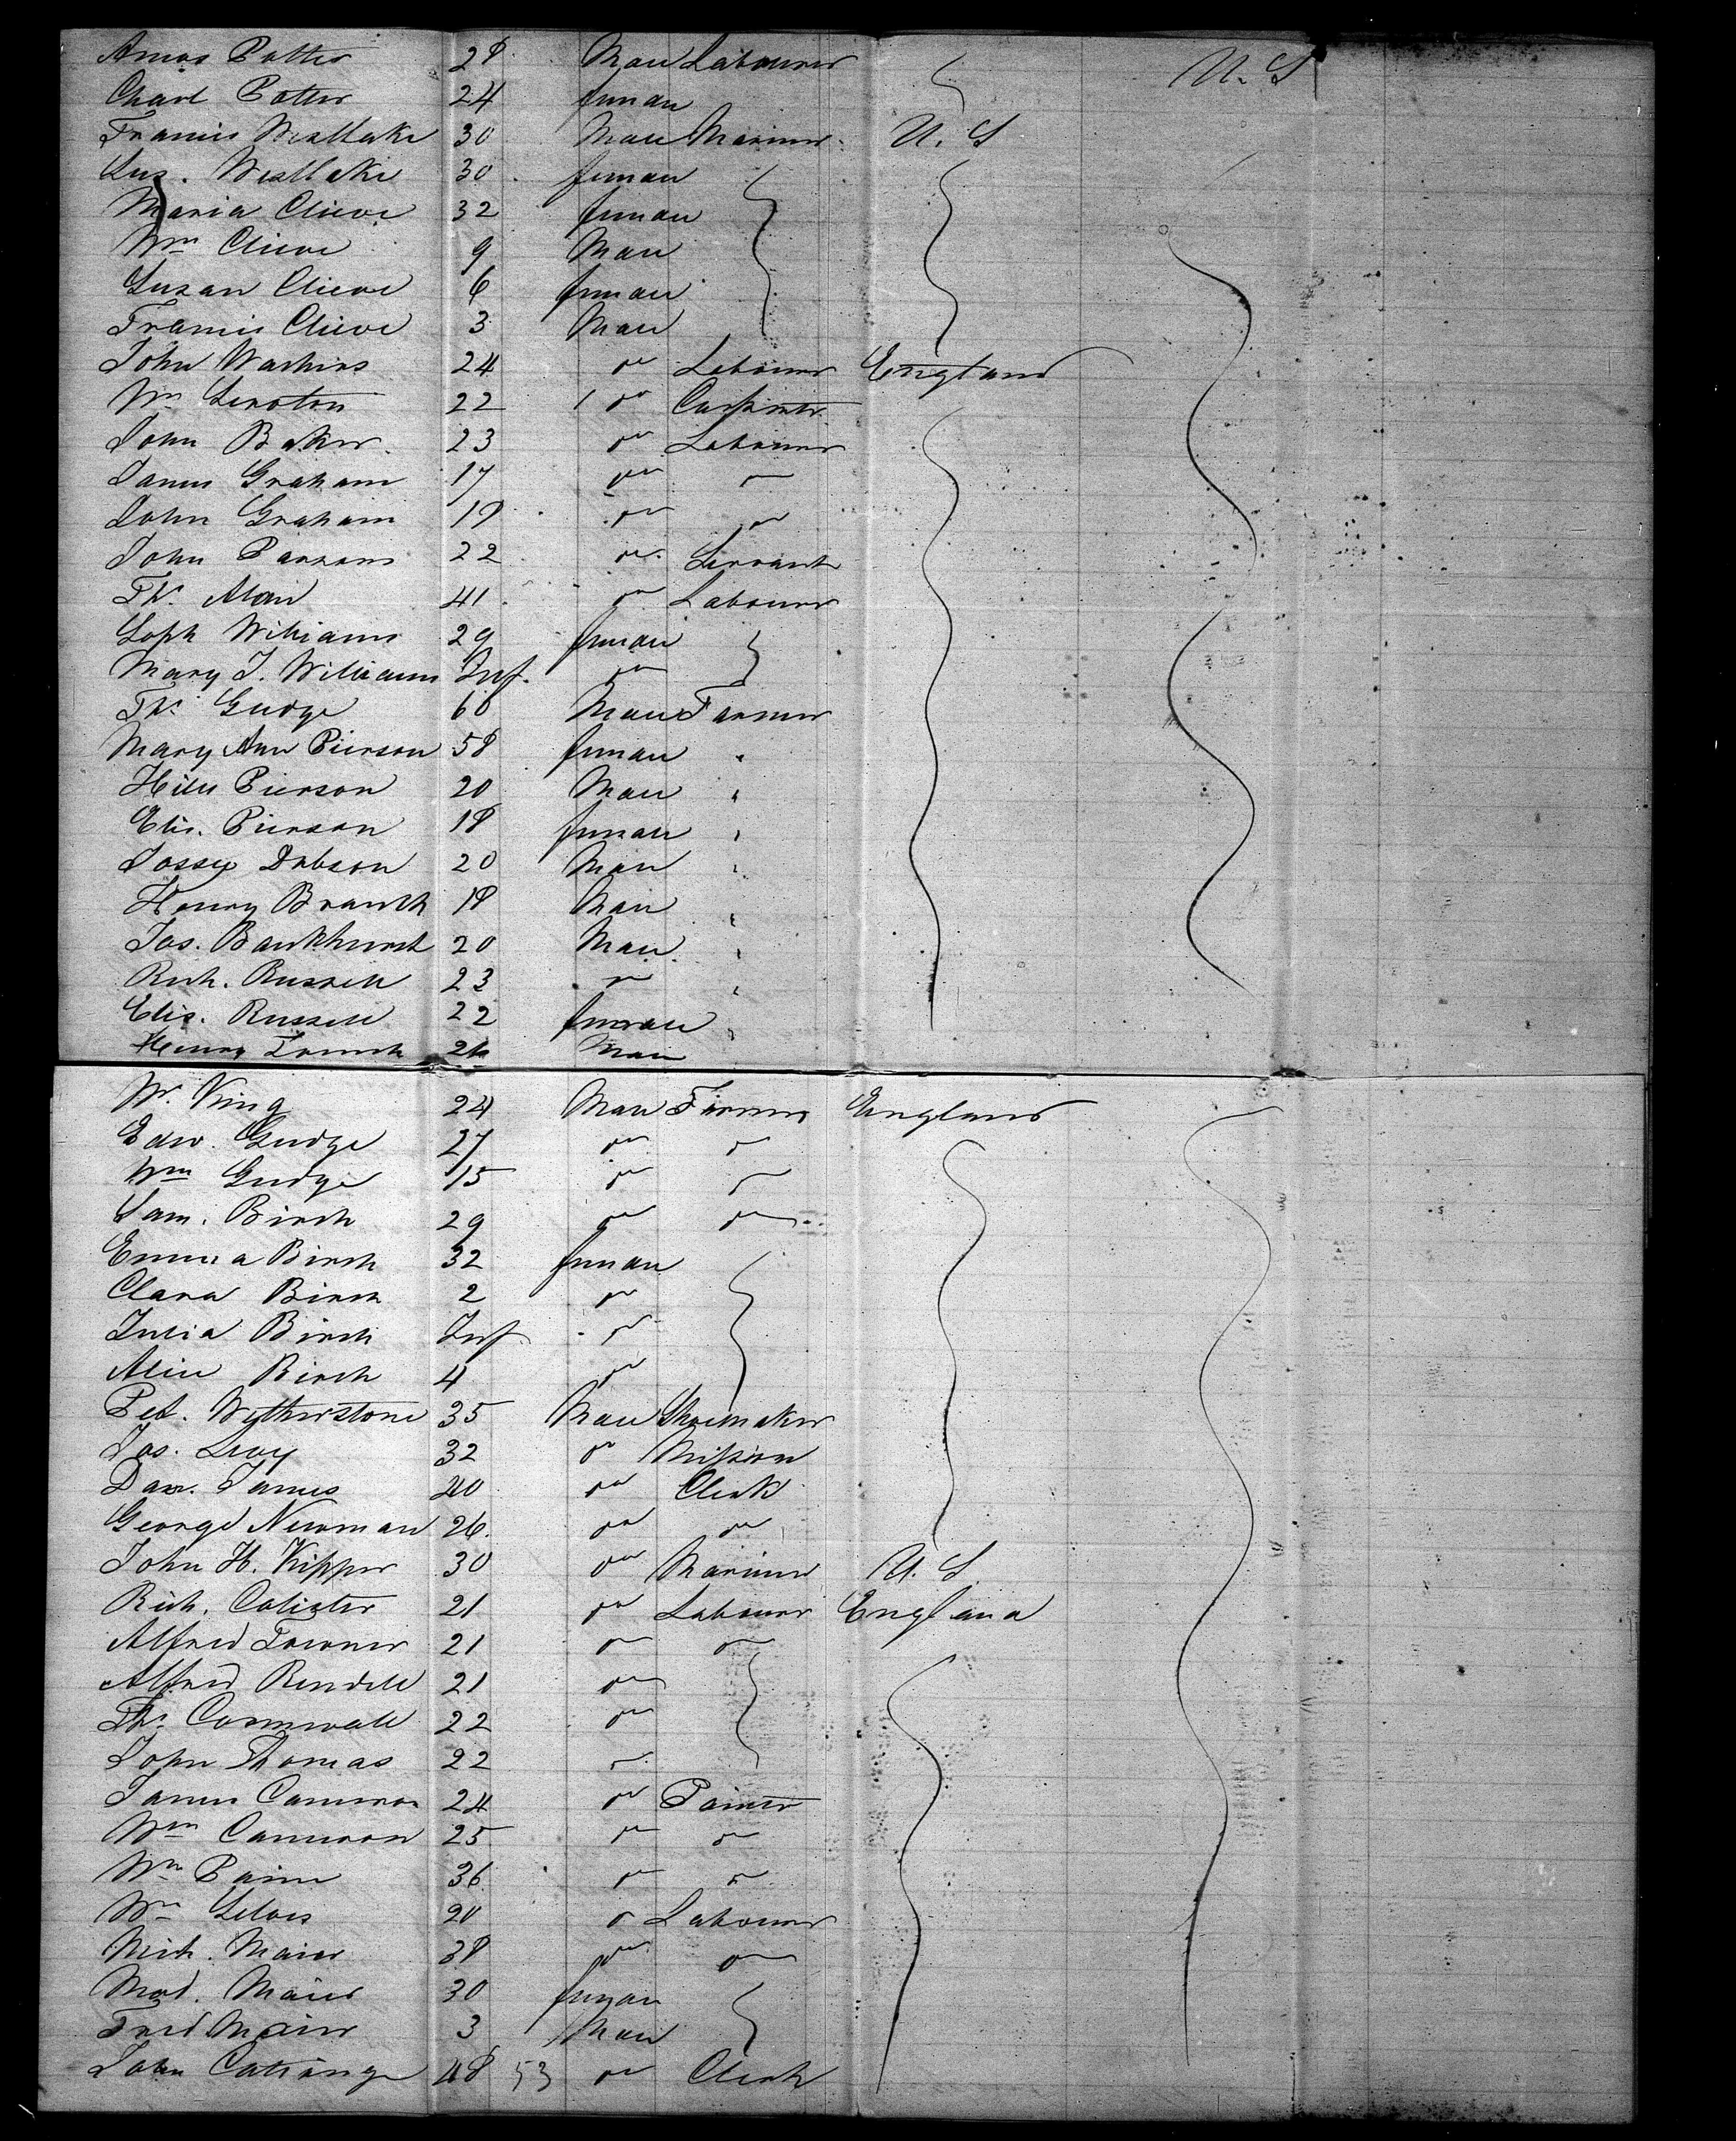 Amos Potter 28 Male Labourer U.S
Charl Potter 24 female
Francis Westlake 30 Male Mariner U.S
Sus. Westlake 30 female
Maria Clieve 32 female
Wm Clieve 9 Male
Suzan Clieve 6 female
Francis Clieve 3 Male
John Watkins 24 do Labourer England
Wm 22 do Carpenter
John Baker 23 do Labourer
James Graham 17 do do
John Graham 19 do do
John Parsons 22 do Servant
Th. 41 do Labourer
Soph Williams 29 female
Mary J. Williams Inf. do
Th. Gudge 60 Male Farmer
Mary Ann Pierson 58 female "
Pierson 20 Male "
Elis. Pierson 18 female "
Dobson 20 Male "
Henry Branch 18 Male "
Jos. Bankhurst 20 Male "
Rich. Russell 23 do "
Elis. Russell 22 female "
Henry 26 Male
Wm King 24 Male Farmer England
Edw. Gudge 27 do do
Wm Gudge 15 do do
Sam. Birch 29 do do
Emma Birch 32 female
Clara Birch 2 do
Julia Birch Inf do
Alice Birch 4 do
Pet. Wytherstone 35 Male Shoemaker
Jos. Levy 32 do
Dav. James 40 do Clerk
George Newman 26 do do
John H. Kipper 30 do Mariner U.S.
Rich. Colister 21 do Labourer England
Alfred 21 do do
Alfred Rendell 21 do
Th. Cornwall 22 do
John Thomas 22 do
James Cameron 24 do Painter
Wm Cameron 25 do do
Wm 36 do do
Wm 20 do Labourer
Mich. Maier 38 do do
Mat. Maier 30 female
Fred Maier 3 Male
John 48 53 do Clerk